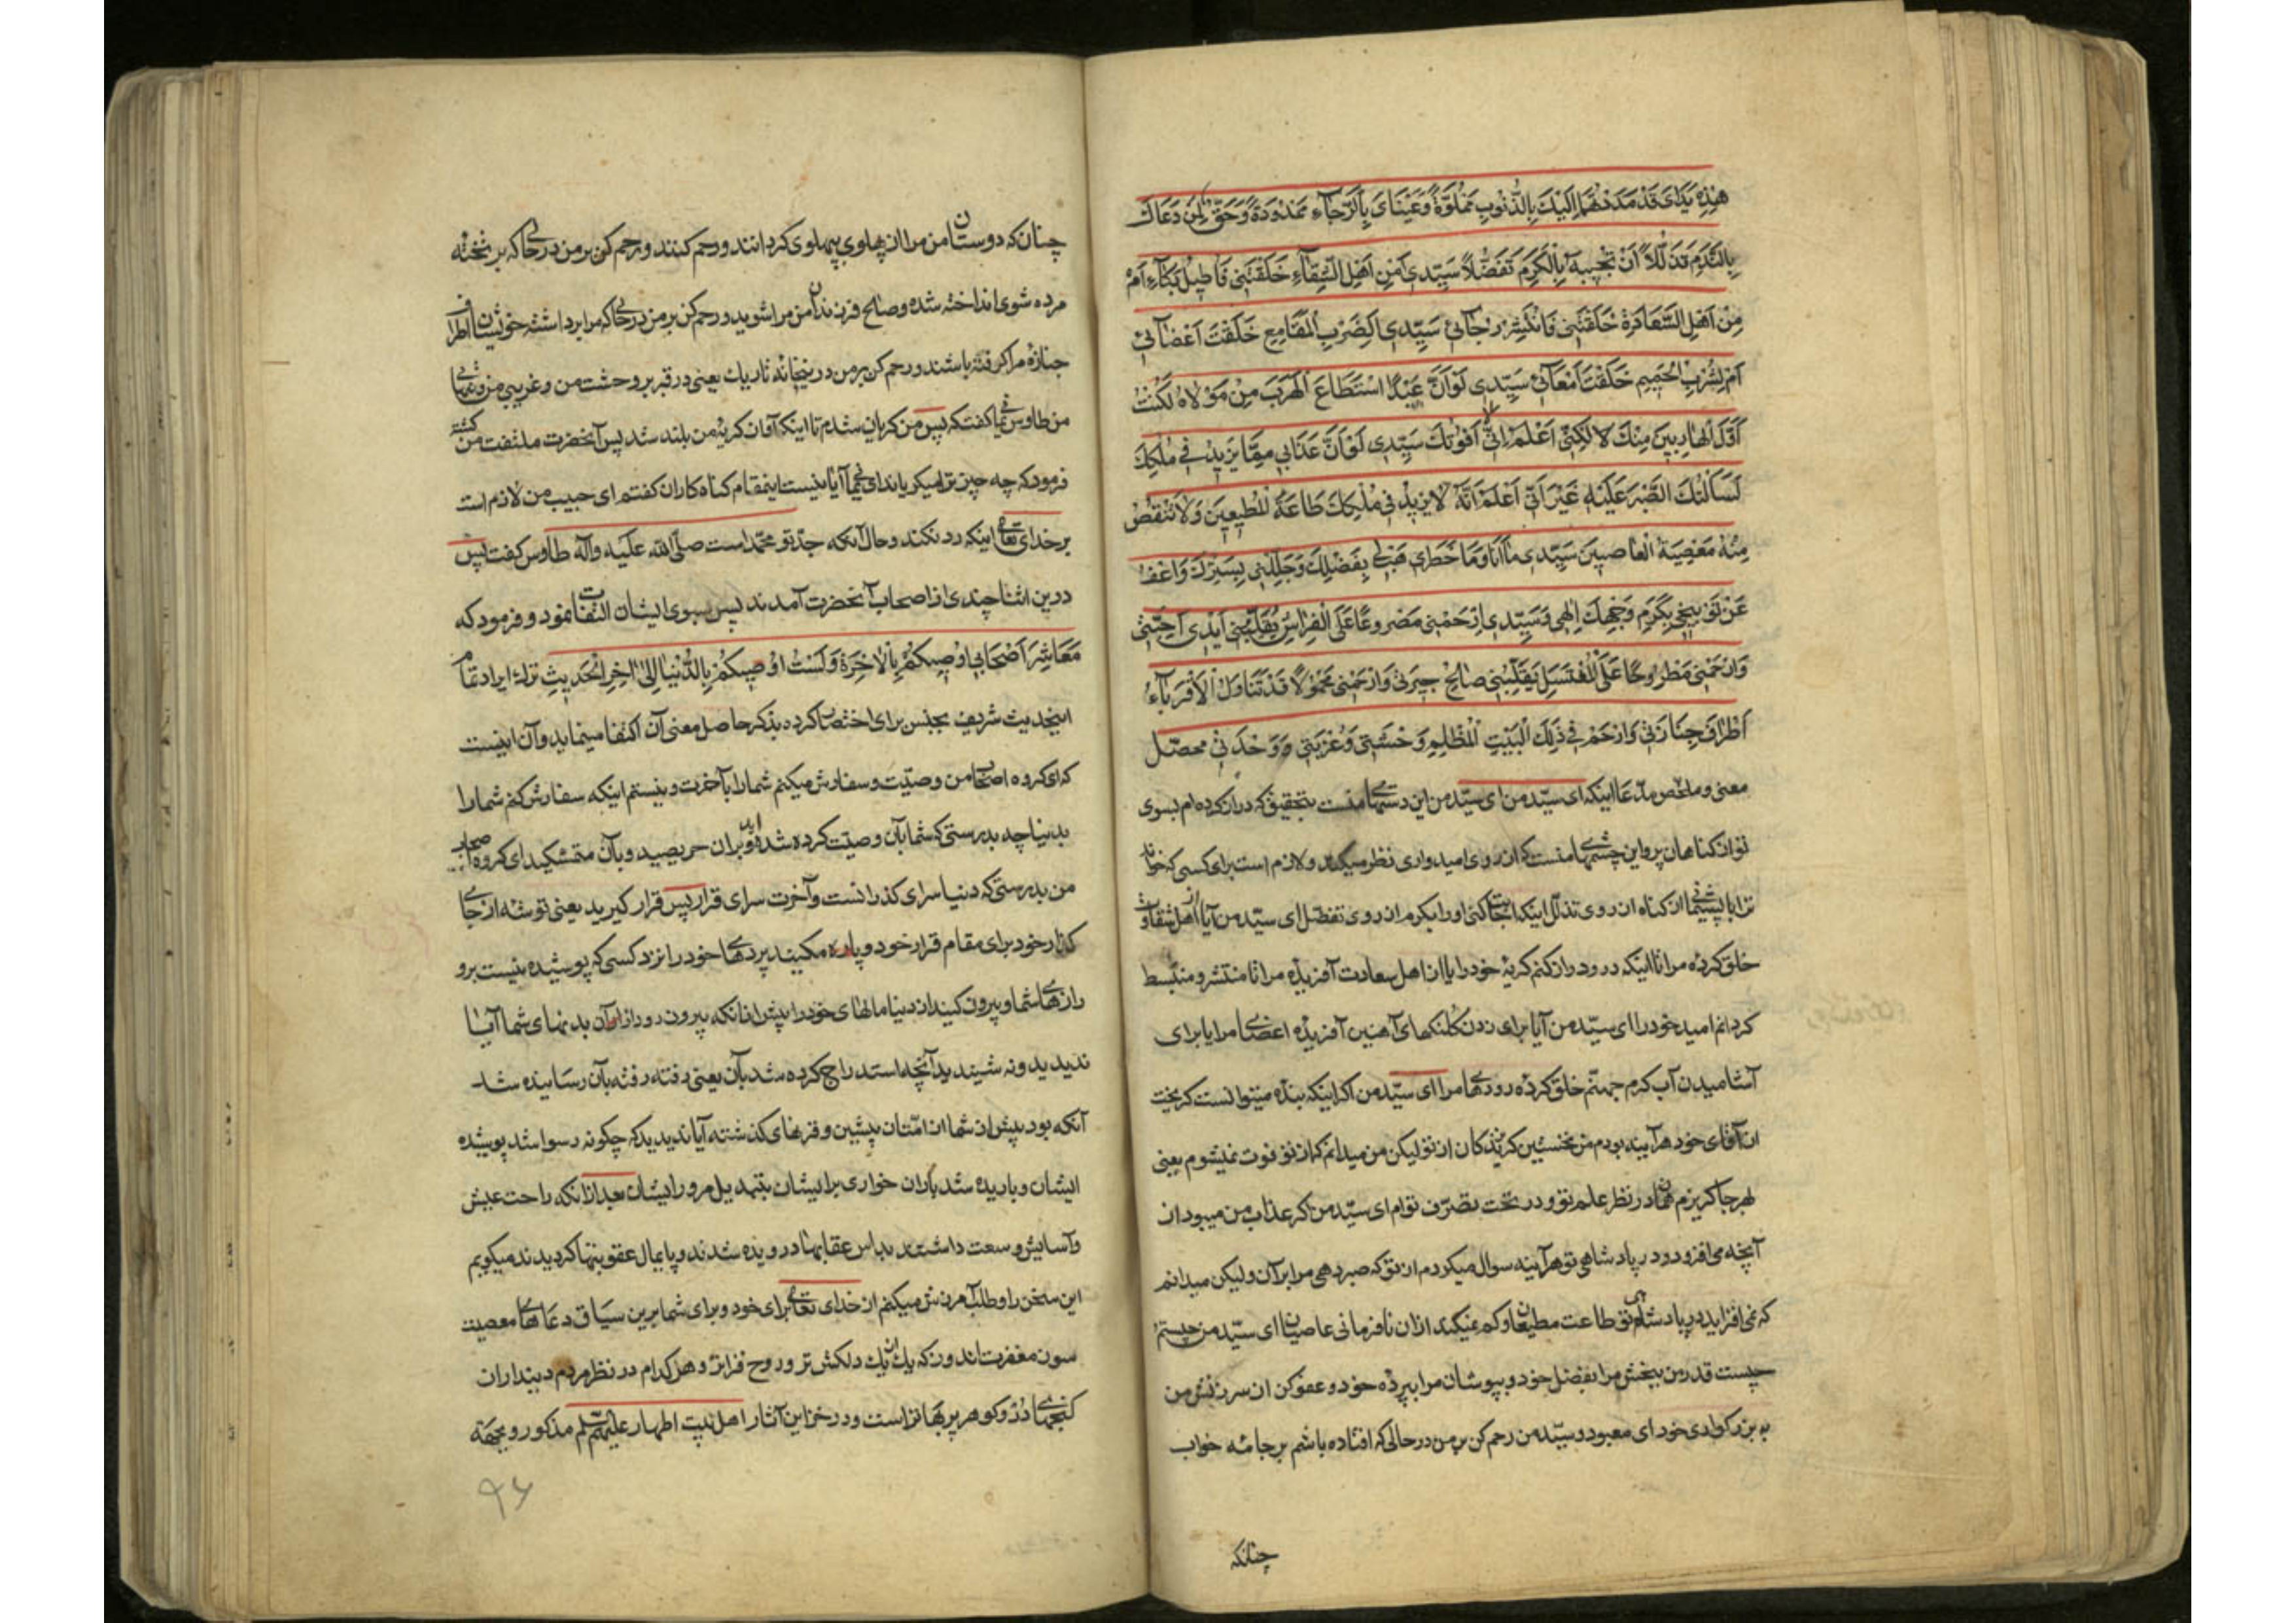 هٰذِهِ يَدَايَ قَدْ مَدَدْتُهُمَا اِلَيْكَ بِالذُّنُوبِ مَمْلُوَّةً وَعَيْنَايَ بِالرَّجَآءِ مَمْدُودَةً وَحَقٌّ لِمَنْ دَعَاكَ
بِالنَّدَمِ تَذَلُّلاً اَنْ تُجِيبَهُ بِالْكَرَمِ تَفَضُّلاً سَيِّدِي اَمِنْ اَهْلِ الشَّقَآءِ خَلَقْتَنِي فَاُطِيلُ بُكَآءِ اَمْ
مِنْ اَهْلِ السَّعَادَةِ خَلَقْتَنِي فَاَنْشُرُ رَجَائِي سَيِّدِي اَلِضَرْبِ الْمَقَامِعِ خَلَقْتَ اَعْضَآئِي
اَمْ لِشُرْبِ الْحَمِيمِ خَلَقْتَ اَمْعَآئِي سَيِّدِي لَوْ اَنَّ عَبْدًا اسْتَطَاعَ الْهَرَبَ مِنْ مَوْلَاهُ لَكُنْتُ
اَوَّلَ الْهَارِبِينَ مِنْكَ لَكِنِّي اَعْلَمُ اَنِّي لَا اَفُوتُكَ سَيِّدِي لَوْ اَنَّ عَذَابِي مِمَّا يَزِيدُ فِي مُلْكِكَ
لَسَاَلْتُكَ الصَّبْرَ عَلَيْهِ غَيْرَ اَنِّي اَعْلَمُ اَنَّهُ لَا يَزِيدُ فِي مُلْكِكَ طَاعَةُ الْمُطِيعِينَ وَلَا تَنْقُصُ
مِنْهُ مَعْصِيَةُ الْعَاصِينَ سَيِّدِي مَا اَنَا وَمَا خَطَرِي هَبْ لِي بِفَضْلِكَ وَجَلِّلْنِي بِسِتْرِكَ وَاعْفُ
عَنْ تَوْبِيخِي بِكَرَمِ وَجْهِكَ اِلٰهِي وَسَيِّدِي اِرْحَمْنِي مَصْرُوعًا عَلَى الْفِرَاشِ تُقَلِّبُنِي اَيْدِي اَحِبَّتِي
وَارْحَمْنِي مَطْرُوحًا عَلَى الْمُغْتَسَلِ يُقَلِّبُنِي صَالِحُ جِيرَتِي وَارْحَمْنِي مَحْمُولاً قَدْ تَنَاوَلَ الْاَقْرِبَآءُ
اَطْرَافَ جِنَازَتِي وَارْحَمْ فِي ذٰلِكَ الْبَيْتِ الْمُظْلِمِ وَحْشَتِي وَغُرْبَتِي وَوَحْدَتِي محصّل
معنی و ملخص مدّعا اینکه ای سیّد من ای سیّد من این دستهای منست بتحقیق که دراز کرده ام بسوی
تو از کناهان پر و این چشمهای منست که از روی امیدواری نظر میکند و لازم است برای کسی که خواند
ترا با پشیمانی از کناه از روی تذلّل اینکه اجابت کنی او را بکرم از روی تفضّل ای سیّد من آیا از اهل شقاوت
خلق کرده مرا تا اینکه دور و دراز کنم کریهٔ خود را یا از اهل سعادت آفریدهٔ مرا تا منتشر و منبسط
کردانم امید خود را ای سیّد من آیا برای زدن کلنکهای آهنین آفریدهٔ اعضای مرا یا برای
آشامیدن آب کرم جهنّم خلق کردهٔ رودهای مرا ای سیّد من اکر اینکه بندهٔ میتوانست کریخت
از آقای خود هرآینه بودم من نخستین کریزندکان از تو لیکن من میدانم که از تو فوت نمیشوم یعنی
بهر جا کریزم همان در نظر علم تو و در تحت تصرّف توام ای سیّد من اکر عذاب من میبود از
آنچه می افزود در پادشاهی تو هرآینه سوال میکردم از تو که صبر دهی مرا بر آن و لیکن میدانم
که نمی افزاید در پادشاهی تو طاعت مطیعان و کم نمیکند از آن نافرمانی عاصیان ای سیّد من چیستم
چیست قدر من ببخش مرا بفضل خود و بپوشان مرا بپردهٔ خود و عفو کن از سرزنش من
به بزرکواری خود ای معبود و سیّد من رحم کن بر من در حالی که افتاده باشم بر جامهٔ خواب
چنانکه
چنان که دوستان من مرا از پهلوی بپهلوی کردانند و رحم کنند و رحم کن بر من در حالی که بر تختهٔ
مرده شوی انداخته شده و صالح فرزندان من مرا شوید و رحم کن بر من در حالی که مرا برداشته خویشان اطراف
جنازهٔ مرا کرفته باشند و رحم کن بر من در بنخانهٔ تاریک یعنی در قبر بر وحشت من و غریبی من و تنهایی
من طاوس یمانی کفت که پس من کریان شدم تا اینکه آواز کریهٔ من بلند شد پس آنحضرت ملتفت من کشته
فرمود که چه چیز ترا میکریاند ای یمانی آیا نیست اینمقام کناه کاران کفتم ای حبیب من لازم است
بر خدای تعالی اینکه رد نکند و حال آنکه جدّ تو محمّد است صلّی اللّه علیه وآله طاوس کفت پس
درین اثنا چندی از اصحاب آنحضرت آمدند پس بسوی ایشان التفات نمود و فرمود که
مَعَاشِرَ اَصْحَابِي اُوصِيكُمْ بِالْآخِرَةِ وَلَسْتُ اُوصِيكُمْ بِالدُّنْيَا اِلىٰ آخِرِ الْحَدِيثِ ترک ایراد تمام
اینحدیث شریف بجنس برای اختصار کرده بذکر حاصل معنی آن اکتفا مینماید و آن اینست
که ای کروه اصحاب من وصیّت و سفارش میکنم شما را بآخرت و نیستم اینکه سفارش کنم شما را
بدنیا چه بدرستی که شما بآن وصیّت کرده شده اید و بر آن حریصید و بآن متمسّکید ای کروه اصحاب
من بدرستی که دنیا سرای کذرانست و آخرت سرای قرار پس قرار کیرید یعنی توشه از جای
کذار خود برای مقام قرار خود و پاره مکنید پردهای خود را نزد کسی که پوشیده نیست برو
رازهای شما و بیرون کنید از دنیا مالهای خود را پیش از انکه بیرون رود از آن بدنهای شما آیا
ندیدید و نه شنیدید آنچه استدراج کرده شد بآن یعنی رفته رفته بآن رسانیده شد
آنکه بود پیش از شما از امّتان پیشین و قرنهای کذشته آیا ندیدید که چکونه رسوا شد پوشیده
ایشان و باریده شد باران خواری بر ایشان بتبدیل مرور ایشان بعد از انکه راحت عیش
و آسایش و سعت داشتند بداس عقابها درویده شدند و پایمال عقوبتها کردیدند میکویم
این سخن را و طلب آمرزش میکنم از خدای تعالی برای خود و برای شما برین سیاق دعاهای معصیت
سوز مغفرت اندوز که یک از یک دلکش تر و روح فزاتر و هر کدام در نظر مردم دینداران
کنجهای درّ و کوهر پر بهاتر است و در خزاین آثار اهل بیت اطهار علیهم السّلم مذکور و بجهة
۹۶